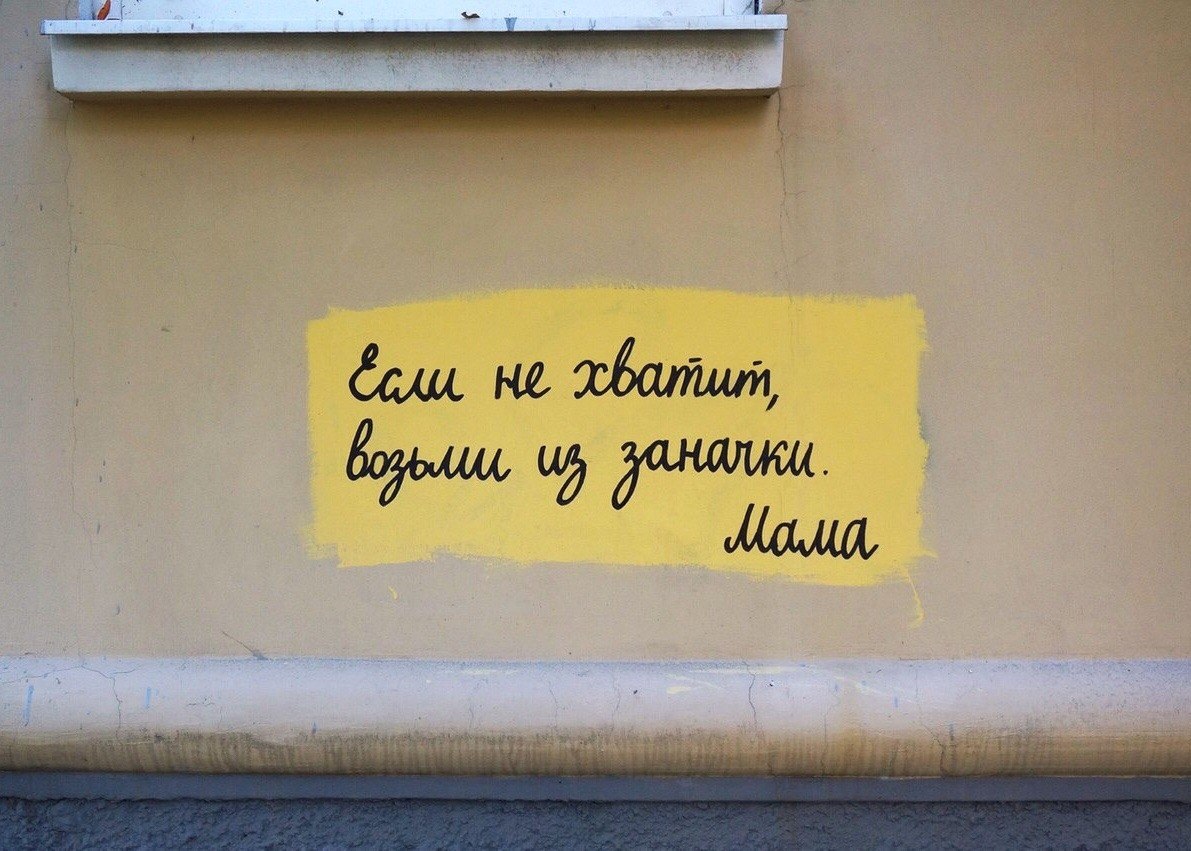 Если не хватит,
возьми из заначки.
Мама